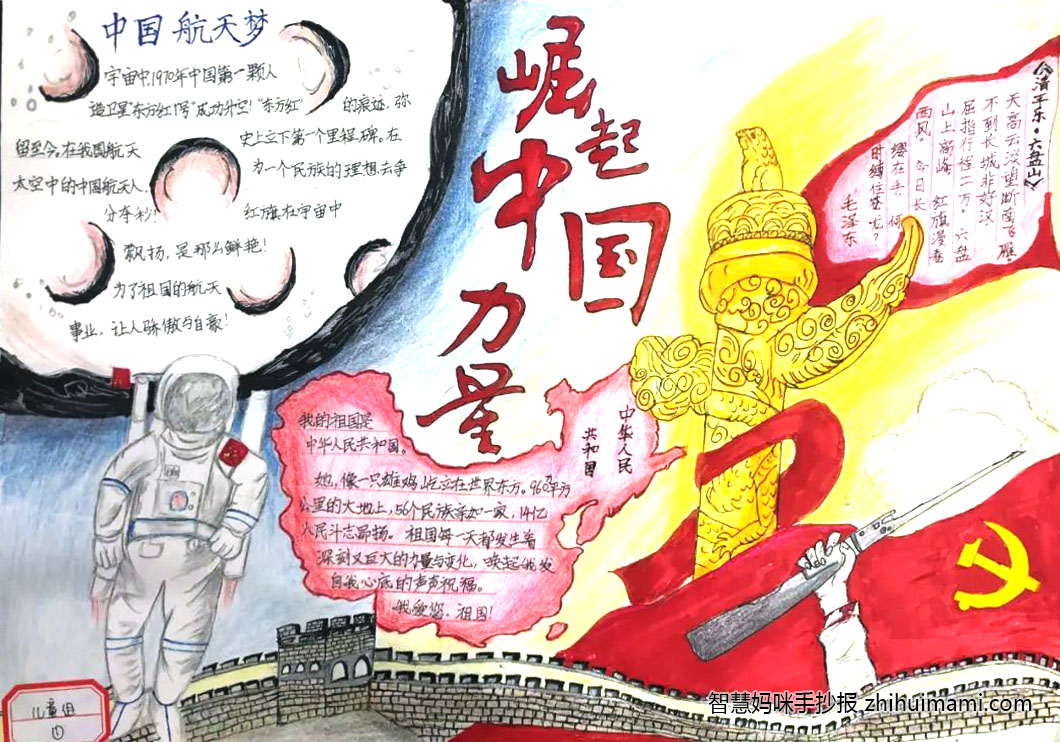 中国航天梦
宇宙中,1970年中国第一颗人
造卫星"东方红1号"成功升空!"东方红"
的痕迹,弥
留至今。在我国航天
史上立下第一个里程碑。在
太空中的中国航天人,
为一个民族的理想去争
分夺秒!
红旗在宇宙中
飘扬,是那么鲜艳!
为了祖国的航天
事业,让人骄傲与自豪!
崛起
中国
力量
《清平乐·六盘山》
天高云淡,望断南飞雁。
不到长城非好汉,
屈指行程二万。六盘
山上高峰,红旗漫卷
西风。今日长
缨在手,何
时缚住苍龙?
毛泽东
中华人民
共和国
我的祖国是
中华人民共和国。
她,像一只雄鸡屹立在世界东方。960万平方
公里的大地上,56个民族亲如一家,14亿
人民斗志昂扬。祖国每一天都发生着
深刻又巨大的力量与变化,唤起我发
自我心底的声声祝福。
我爱您,祖国!
儿童组
①
智慧妈咪手抄报 zhihuimami.com